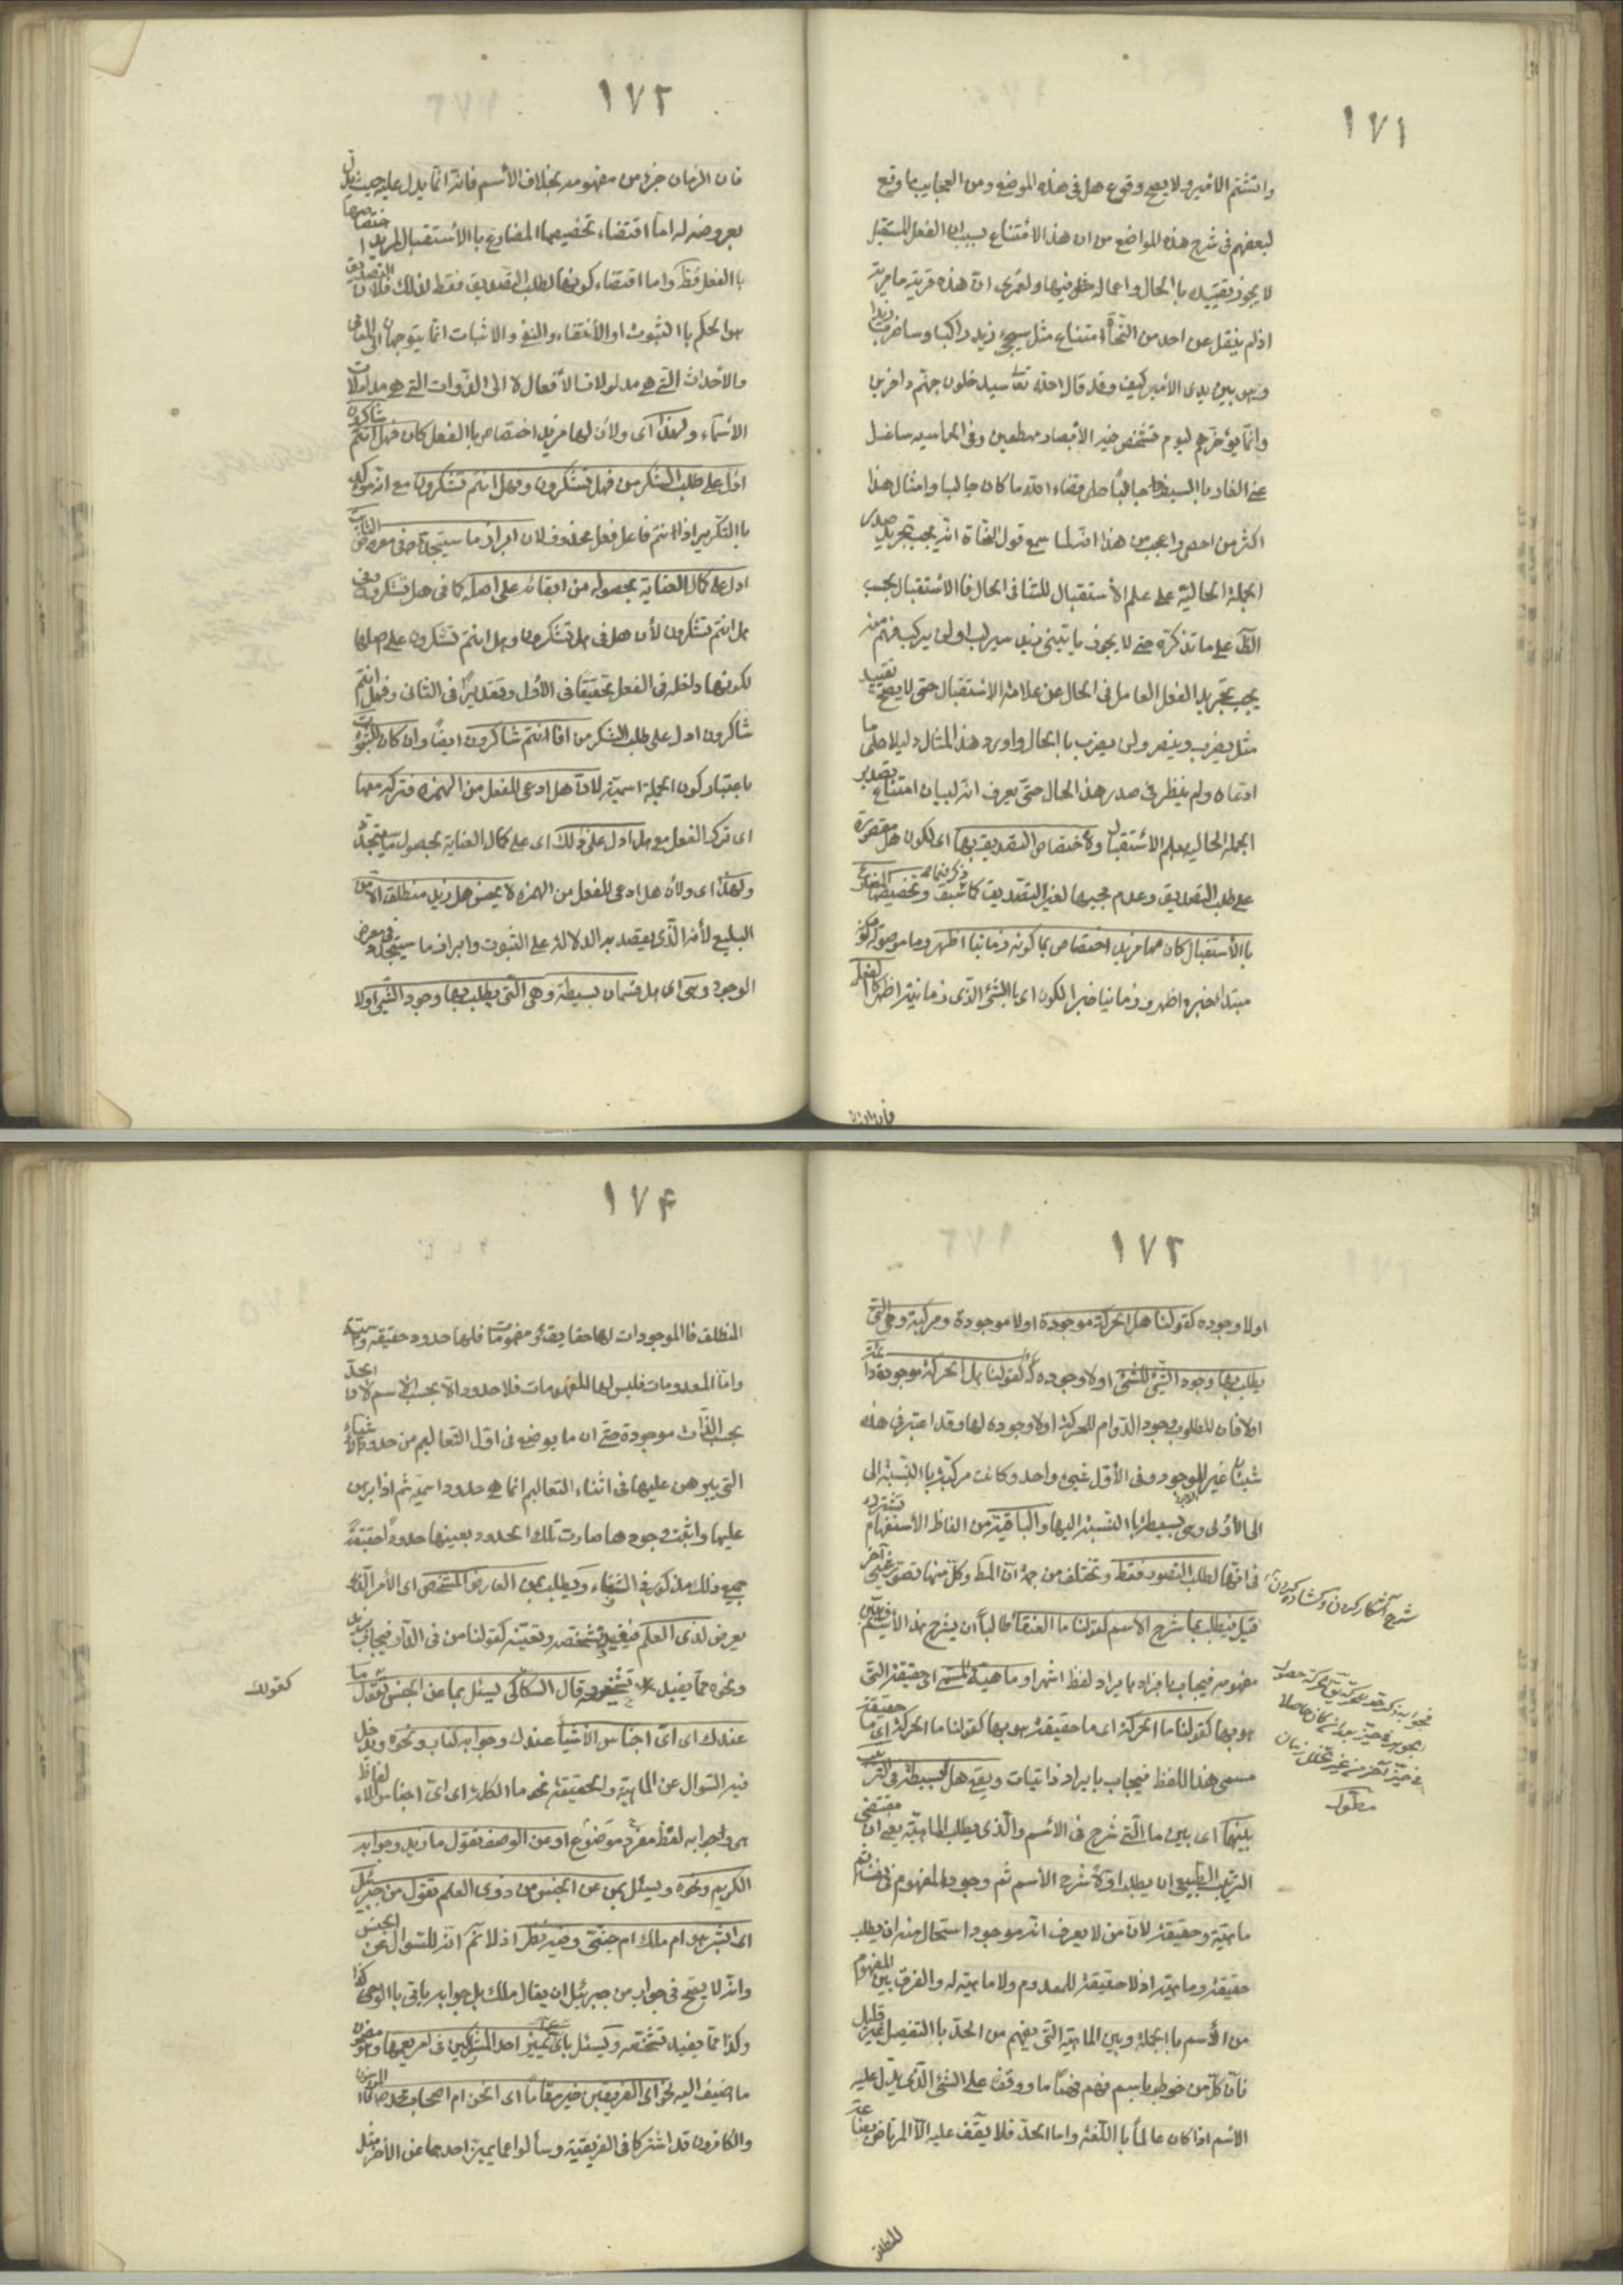 ١٧١
واتشتم الامير ولا يصح وقوع هل فى هذه المواضع ومن العجايب ما وقع
لبعضهم فى شرح هذه المواضع من ان هذا الامتناع بسبب ان الفعل المستقبل
لا يجوز تقييده باالحال واعماله فيها ولعمرى ان هذه فرية ما مرية
اذ لم ينقل عن احد من النحاة امتناع مثل سيجىء زيد راكبا وساضرب زيدا
وهو بين يدى الامير كيف وقد قال الله تعا سيدخلون جهنم داخرين
وانما يؤخرهم ليوم تشخص فيه الأبصار مهطعين وفى الحماسيه ساغسل
عنى العار باالسيف جالبا على قضاء الله ما كان جالبا وامثال هذا
اكثر من احصى واعجب من هذا انه لما سمع قول النحاة انه يجب تجريد صدر
الجملة الحالية على علم الأستقبال للتنافى الحال فاالأستقبال بحسب
الظ على ما تذكره حتى لا يجوز ياتينى زيد سيركب او لن يركب فهم منه
يجب تجريد الفعل العامل فى الحال عن علامة الاستقبال حتى لا يصح تقييد
مثل يضرب وينصر ولن يضرب باالحال واورد هذا المثال دليلا على ما
ادعاه ولم ينظر فى صدر هذا الحال حتى يعرف انه لبيان امتناع تصدير
الجملة الحالية بعلم الأستقبال ولأختصاص التصديق بها اى لكون هل مقصورة
على طلب التصديق وعدم مجيها لغير التصديق كما سبق وتخصيصها المضارع
باالأستقبال كان لها مزيد اختصاص بما كونه زمانيا اظهر وما موصولة وكونه
مبتدا خبره اظهر وزمانيا خبر الكون اى باالشئ الذى زمانيته اظهر كالفعل
فان الزمان
١٧٢
فان الزمان جزء من مفهومه بخلاف الأسم فانه انما يدل عليه حيث يدل
بعروضه له اما اقتضاء تخصيصها المضارع باالأستقبال لمزيد اختصاصها
باالفعل فظ واما اقتضاء كونها لطلب التصديق فقط لذلك فلان التصديق
هو الحكم باالثبوت او الأنتفاء والنفى والاثبات انما يتوجهان الى المعانى
والأحداث التى هى مدلولات الأفعال لا الى الذوات التى هى مدلولات
الأسماء ولهذا اى ولأن لها مزيد اختصاص باالفعل كان فهل انتم شاكرون
ادل على طلب الشكر من فهل تشكرون وفهل انتم تشكرون مع انه مؤكد
باالتكرير اذ انتم فاعل فعل محذوف لان ابراز ما سيتجدد فى معرض الثابت
ادل على كمال العناية بحصوله من ابقائه على اصله كما فى هل تشكرون وفى
هل انتم تشكرون لأن هل فى هل تشكرون وهل انتم تشكرون على اصلها
لكونها داخله فى الفعل تحقيقا فى الأول وتقديرا فى الثانى وفهل انتم
شاكرون ادل على طلب الشكر من افانتم شاكرون ايضا وان كان للثبوت
باعتبار كون الجملة اسمية لان هل ادعى للفعل من الهمزه فتركه معها
اى ترك الفعل مع هل ادل على ذلك اى على كمال العناية بحصول ما سيتجدد
ولهذا اى ولأن هل ادعى للفعل من الهمزه لا يحسن هل زيد منطلق الا من
البليغ لأنه الذى يقصد به الدلالة على الثبوت وابراز ما سيتجدد فى معرض
الوجود وهى اى هل قسمان بسيطة وهى التى يطلب بها وجود الشئ اولا
١٧٣
اولا وجوده كقولنا هل الحركة موجودة او لا موجودة ومركبة وهى التى
يطلب بها وجود الشئ للشئ اولا وجوده له كقولنا هل الحركة موجودة دائمة
اولا فان المطلوب وجود الدوام للحركة اولا وجوده لها وقد اعتبر فى هذه
شيئان غير الوجود وفى الأول شيىء واحد وكانت مركبة باالنسبة الى
الى الأولى وهى بسيطة باالنسبة اليها والباقية من الفاظ الأستفهام تشترك
فى انها لطلب التصور فقط وتختلف من جهة ان المط وكل منها تصور شيئ آخر
قيل فيطلب بما شرح الأسم كقولنا ما العنقاء طالبا ان يشرح هذا الأسم
مفهومه فيجاب بايراد لفظ اشهر او ماهية المسمى اى حقيقته التى
هو بها كقولنا ما الحركة اى ما حقيقته هو بها كقولنا ما الحركة اى ما حقيقة
مسمى هذا اللفظ فيجاب بايراد ذاتيات ويقع هل البسيطة فى الترتيب
بينهما اى بين ما التى شرح فى الأسم والذى يطلب الماهية يعنى ان مقتضى
الترتيب الطبيعى ان يطلب اولا شرح الأسم ثم وجود المفهوم فى نفسه ثم
ماهيته وحقيقته لأن من لا يعرف انه موجود استحال منه ان يطلب
حقيقته وماهيته اذ لا حقيقة للمعدوم ولا ماهية له والفرق بين المفهوم
من الأسم باالجملة وبين الماهية التى يفهم من الحد باالتفصيل غير قليل
فان كل من خوطب باسم فهم فهما ما ووقف على الشئ الذى يدل عليه
الاسم اذا كان عالما باللغة واما الحد فلا يقف عليه الا المرتاض بصناعة
شرح آشكار كردن وكشاده كردن
مطول
المنطلق
١٧۴
المنطلق فاالموجودات لها حقايق ومفهومات فلها حدود حقيقه واسمية
واما المعدومات فليس لها الا المفهومات فلا حدود الا بحسب الاسم لان الحد
بحسب الذات موجودة حتى ان ما يوضع فى اول التعاليم من حدود الأشياء
التى يبرهن عليها فى اثناء التعاليم انما هى حدود اسمية ثم اذا برهن
عليها واثبت وجودها صارت تلك الحدود بعينها حدودا حقيقة
جميع ذلك مذكور فى الشفاء ويطلب بمن العارض المشخص اى الأمر الذى
يعرض لذى العلم فيفيد تشخصه وتعينه كقولنا من فى الدار فيجاب بزيد
ونحوه مما يفيد تشخصه وقال السكاكى يسئل بما عن الجنس تقول ما
عندك اى اى اجناس الأشياء عندك وجوابه كتاب ونحوه ويدخل
فيه السؤال عن الماهية والحقيقة نحو ما الكلمة اى اى اجناس الالفاظ
هى وجوابه لفظ مفرد موضوع او عن الوصف تقول ما زيد وجوابه
الكريم ونحوه ويسئل بمن عن الجنس من ذوى العلم تقول من جبرئيل
اى ابشر هو ام ملك ام جنى وفيه نظر اذ لا نم انه للسؤال عن الجنس
وانه لا يصح فى جواب من جبرئيل ان يقال ملك بل جوابه ياتى باالوحى كذا
وكذا مما يفيد تشخصه ويسئل باى عما يميز احد المتشاركين فى امر يعمهما وهو مضمون
ما اضيف اليه نحو اى الفريقين خير مقاما اى انحن ام اصحاب محمد صـ فالمؤمنون
والكافرون قد اشتركا فى الفريقية وسألوا عما يميز احدهما عن الأخر مثل
كقولك